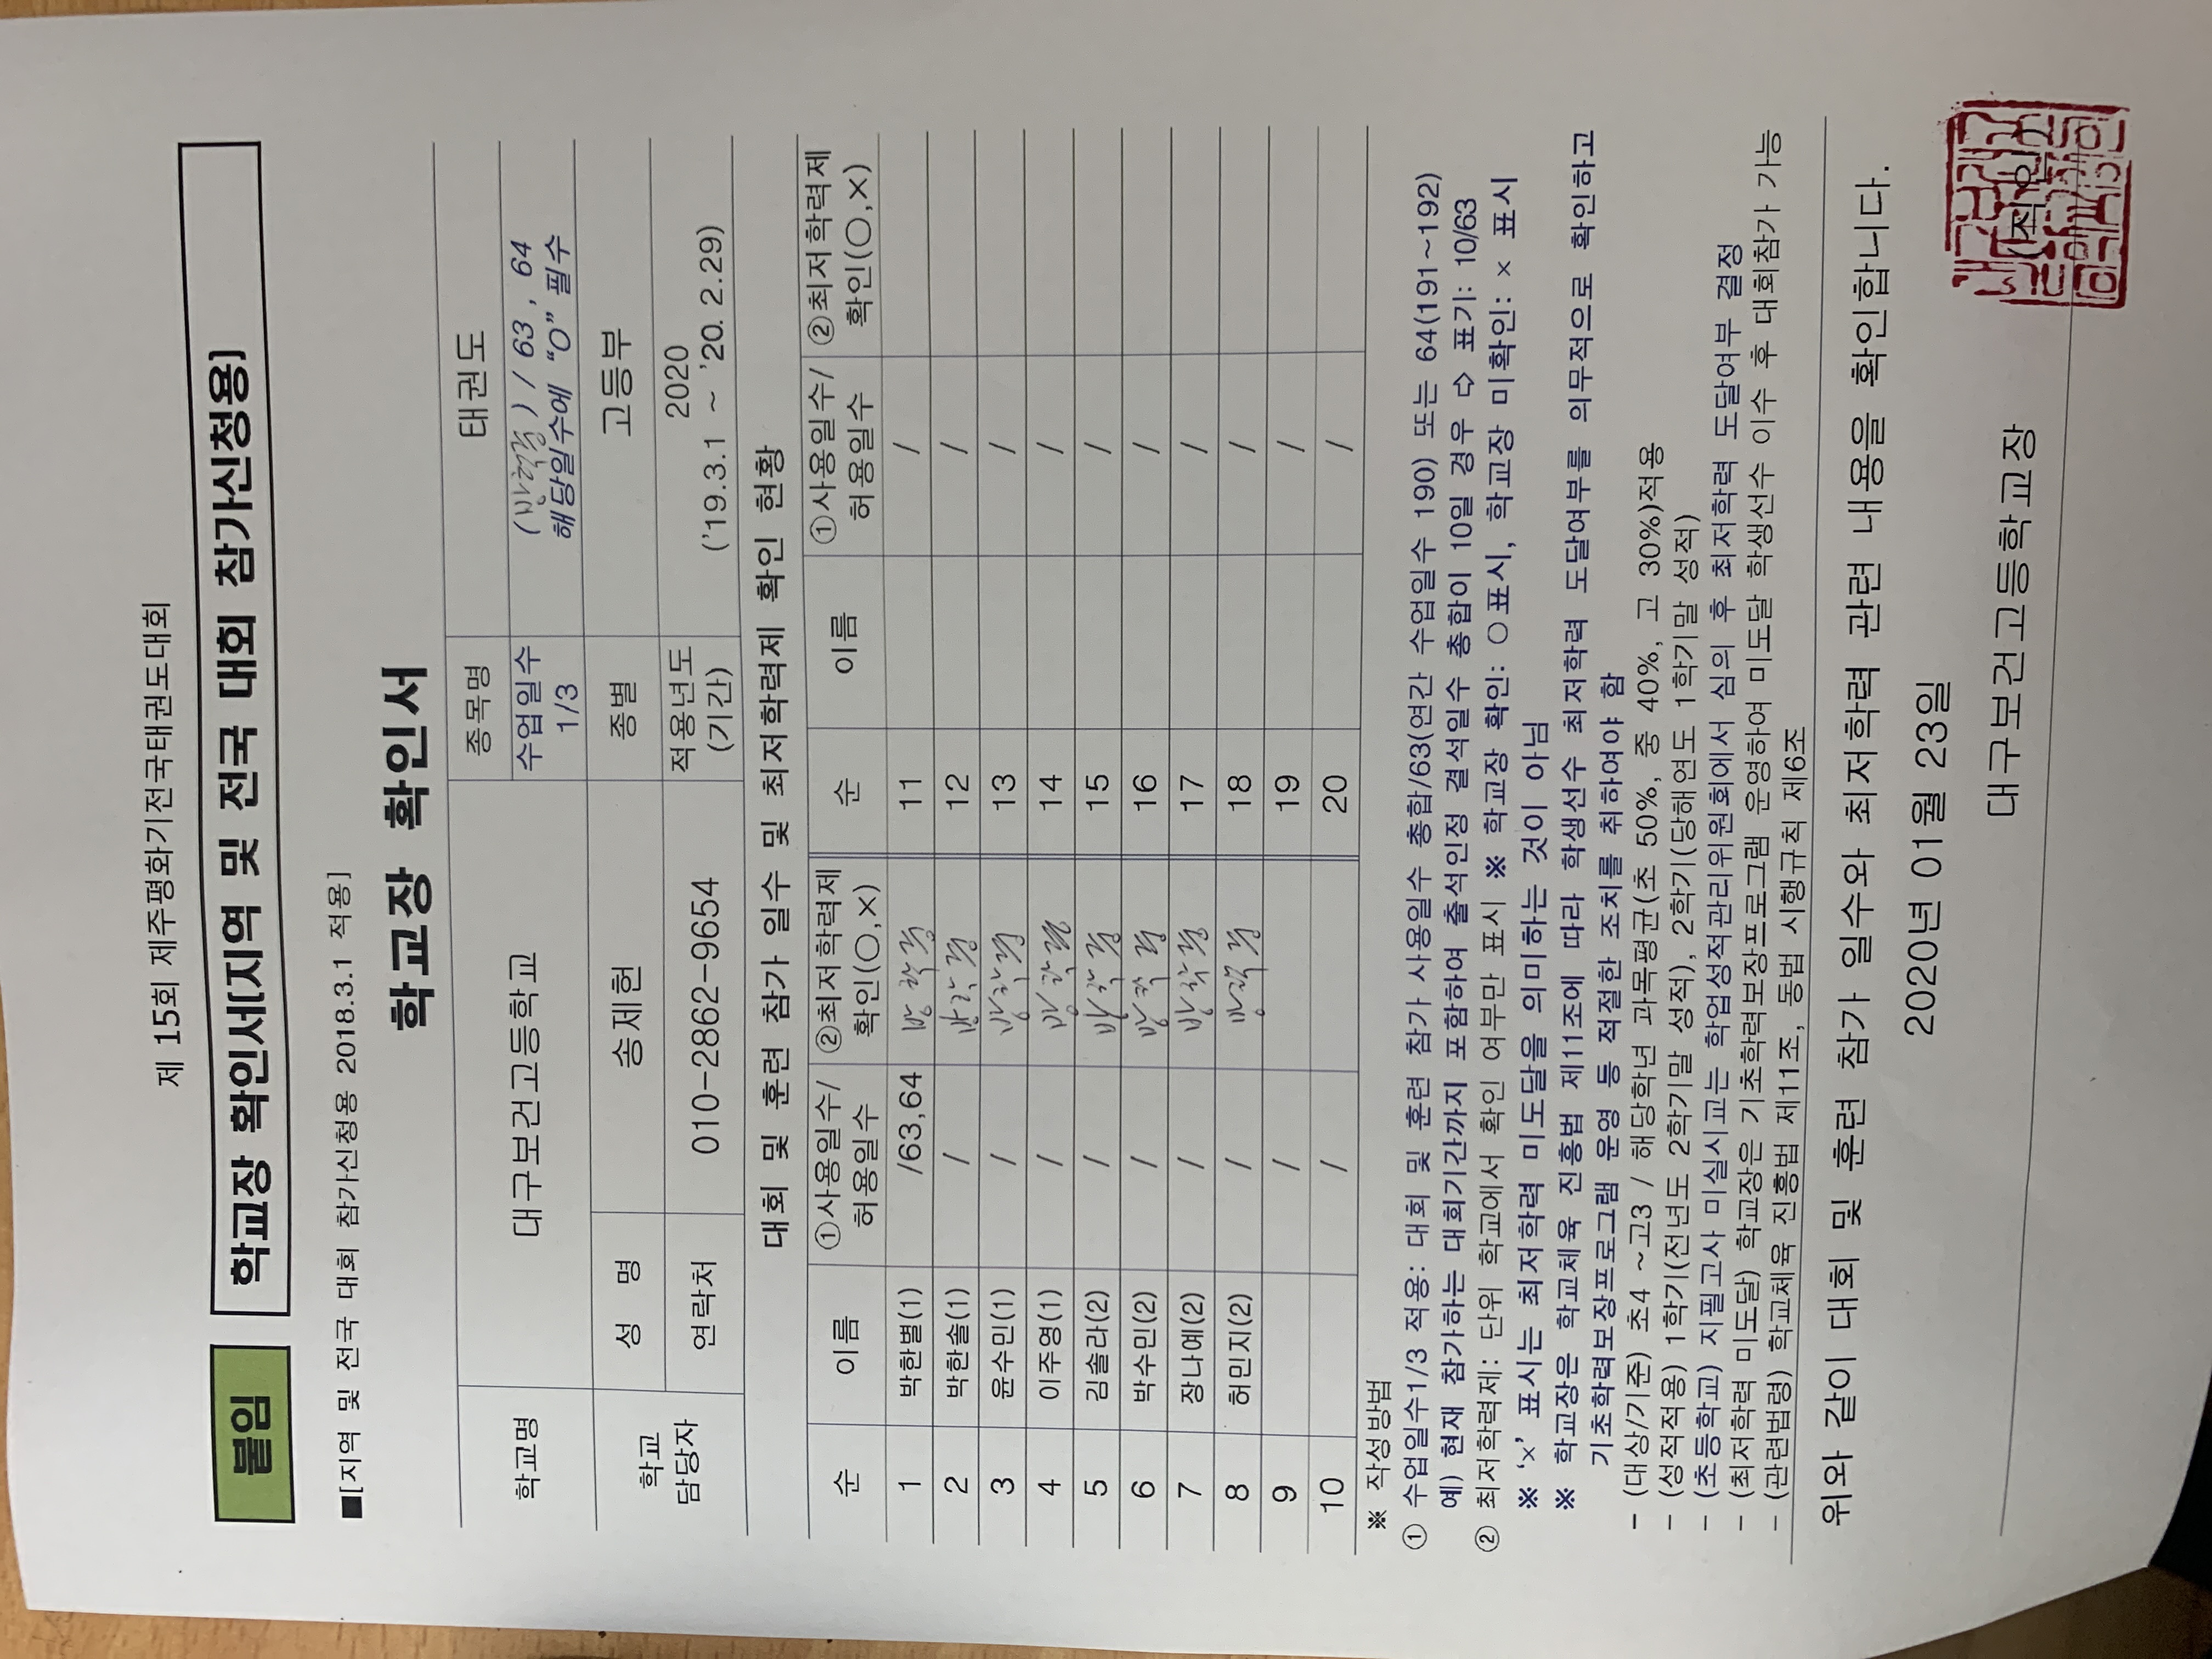 제 15회 제주평화기전국태권도대회
붙임 학교장 확인서[지역 및 전국 대회 참가신청용]
■[지역 및 전국 대회 참가신청용 2018.3.1 적용]
학교장 확인서
학교명 대구보건고등학교 종목명 태권도
수업일수 1/3 (방학중) / 63, 64
해당일수에 “O” 필수
학교 담당자 성 명 송제헌 종별 고등부
연락처 010-2862-9654 적용년도 (기간) 2020
('19.3.1 ~ '20. 2.29)
대회 및 훈련 참가 일수 및 최저학력제 확인 현황
순 이름 ①사용일수/ 허용일수 ②최저학력제 확인(○,×) 순 이름 ①사용일수/ 허용일수 ②최저학력제 확인(○,×)
1 박한별(1) /63,64 방학중 11 /
2 박한솔(1) / 방학중 12 /
3 윤수민(1) / 방학중 13 /
4 이주영(1) / 방학중 14 /
5 김솔라(2) / 방학중 15 /
6 박수민(2) / 방학중 16 /
7 장나예(2) / 방학중 17 /
8 허민지(2) / 방학중 18 /
9 / 19 /
10 / 20 /
※ 작성방법
① 수업일수1/3 적용: 대회 및 훈련 참가 사용일수 총합/63(연간 수업일수 190) 또는 64(191~192)
예) 현재 참가하는 대회기간까지 포함하여 출석인정 결석일수 총합이 10일 경우 ⇨ 표기: 10/63
② 최저학력제: 단위 학교에서 확인 여부만 표시 ※ 학교장 확인: ○표시, 학교장 미확인: × 표시
※ ‘×’ 표시는 최저학력 미도달을 의미하는 것이 아님
※ 학교장은 학교체육 진흥법 제11조에 따라 학생선수 최저학력 도달여부를 의무적으로 확인하고
기초학력보장프로그램 운영 등 적절한 조치를 취하여야 함
- (대상/기준) 초4 ~고3 / 해당학년 과목평균(초 50%, 중 40%, 고 30%)적용
- (성적적용) 1학기(전년도 2학기말 성적), 2학기(당해연도 1학기말 성적)
- (초등학교) 지필고사 미실시교는 학업성적관리위원회에서 심의 후 최저학력 도달여부 결정
- (최저학력 미도달) 학교장은 기초학력보장프로그램 운영하여 미도달 학생선수 이수 후 대회참가 가능
- (관련법령) 학교체육 진흥법 제11조, 동법 시행규칙 제6조
위와 같이 대회 및 훈련 참가 일수와 최저학력 관련 내용을 확인합니다.
2020년 01월 23일
대구보건고등학교장 (직인)